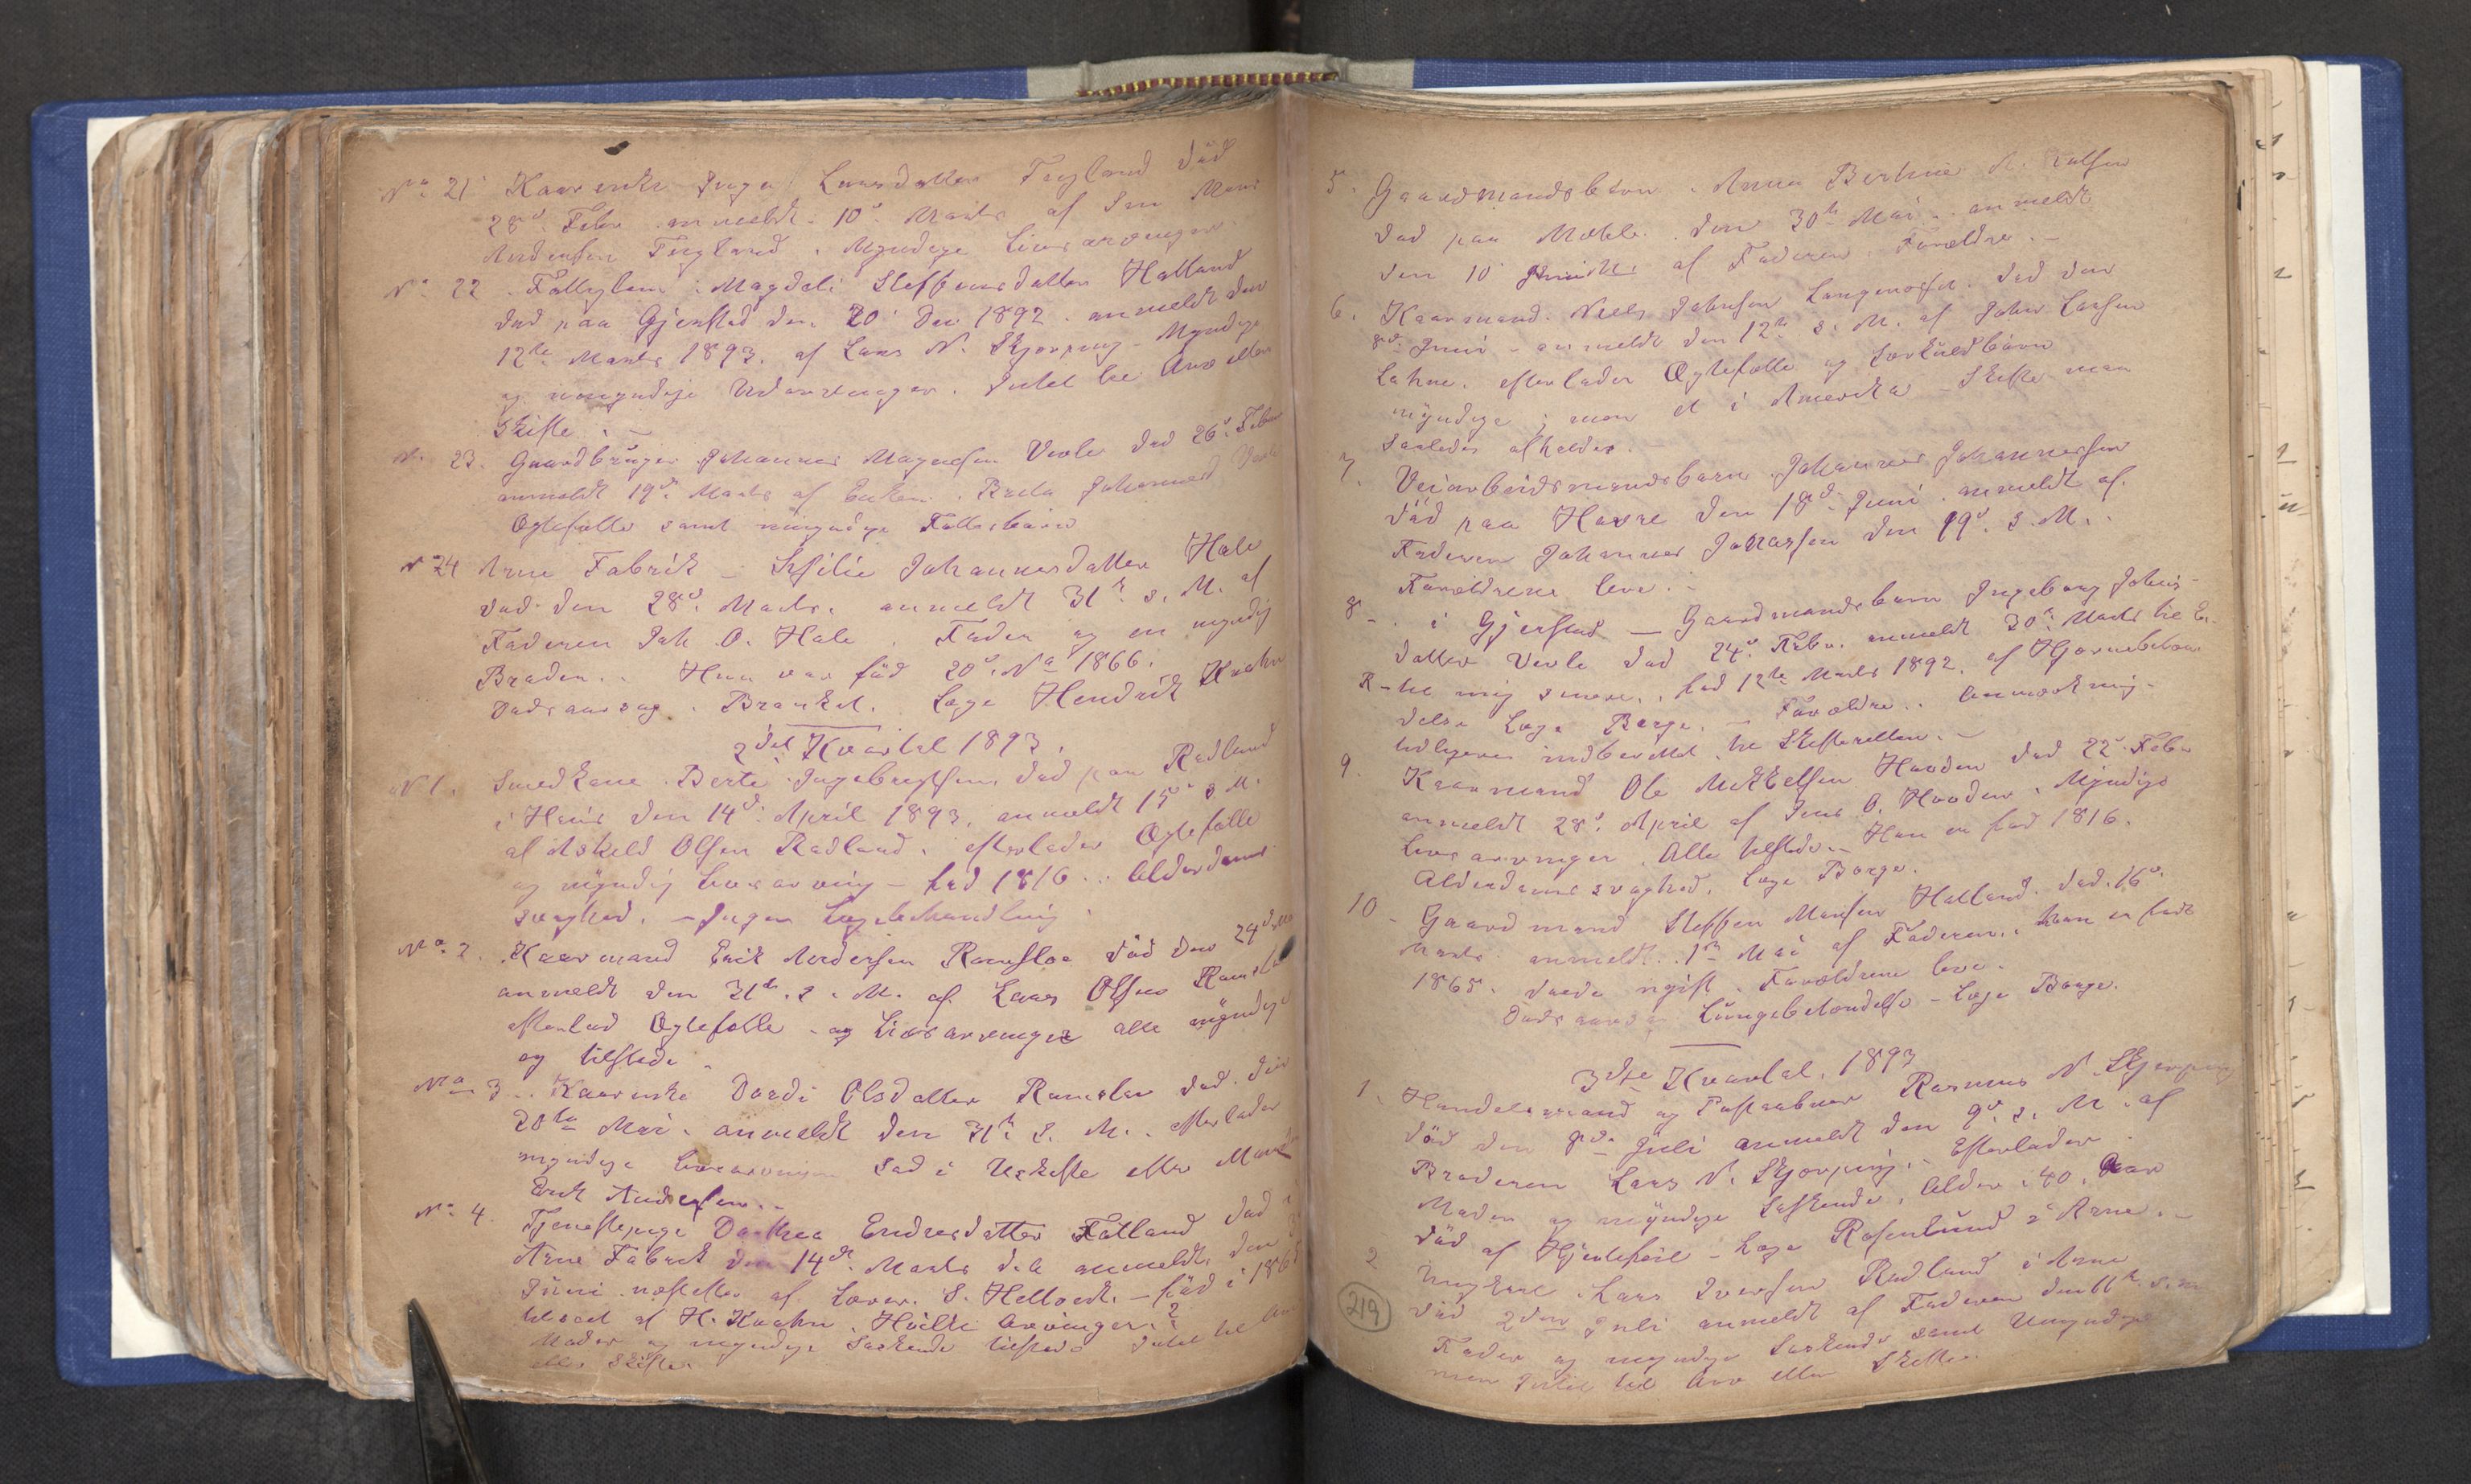 No 21 Kaarenke Inga Larsdatter Tegland död
28d Febr. anmeldt 10d Marts af Søn Mons
Andersen Tegland. Myndige Livsarvinger.
No 22. Fattiglem Magdeli Steffensdatter Hatland
död paa Gjerstad den 20 Dec 1892. anmeldt den
12te Marts 1893. af Lars N. Skjerping - Myndige
og umyndige Udarvinger. Intet til Arv eller
Skifte. -
No 23. Gaardbruger Johannes Magnesen Vevle död 26d Febr
anmeldt 19d Marts af Enken Brita Johannesd Vevle
Ægtefælle samt umyndige Fællesbörn
No 24 Arne Fabrik - Sesilie Johannesdatter Hole
död den 28d Marts. anmeldt 31te s. M. af
Faderen Joh. O. Hole. Fader og en myndig
Broder. Hun var föd 20d 1866.
Dödsaarsag. Læge Hendrik Krohn
2det Kvartal 1893.
No 1. Smedkone Berte Ingebrigtsen, död paa Redland
i Hans den 14d April 1893, anmeldt 15d s. M.
af Askeld Olsen Radland. efterlader Ægtefælle
og myndig Livsarving - föd 1816... Alderdoms
svaghed. - Ingen Lægebehandling.
No 2. Kaarmand Erik Andersen Romslo död den 24d Mai
anmeldt den 31te s. M. af Lars Olsen Romslo
efterlod Ægtefælle - og Livsarvinger alle myndige
og tilstede.
No 3. Kaarenke Dordi Olsdatter Romslo död den
20te Mai. anmeldt den 31te s. M. efterlader
myndige Livsarvinger sad i Uskifte efter Mand
Erik Andersen..
No 4. Tjenestepige Dorthea Endresdatter Fotland död i
Arne Fabrik den 14de Marts d.A. anmeldt, den
Juni næstefter af Laver. S. Helltvedt. - föd i 186
tilseet af H. Krohn. Hvilke Arvinger?
Moder og myndige Söskende tilstede Intet til Arv
eller Skifte
5. Gaardmandsbarn Anna Bertine N.
död paa Mæhle. den 30te Mai. anmeldt
den 10 Juni af Faderen. Forældre. -
6. Kaarmand. Niels Johnsen Langenes. död den
8d Juni - anmeldt den 12te s. M. af John Larsen
efterlader Ægtefælle og Særkuldbörn
myndige; men et i Amerika Skifte man
saaledes afholder.
7. Veiarbeidsmandsbarn Johannes Johannessen
död paa Havre den 18d Juni. anmeldt af
Faderen Johannes Johnsen den 19d. s. M.
Forældrene leve. -
8. i Gjerstad - Gaardmandsbarn Ingeborg Johns-
datter Vevle död 24d Febr. anmeldt 30te Marts
til mig senere. föd 12te Marts 1892. af Hjernebeten-
delse Læge Borge. - Forældre. Anmærkning
indberettet til Skifteretten. -
9. Kaarmand Ole Mikkelsen Houden död 22d Febr
anmeldt 28d April af Jens O. Houden. Myndige
Livsarvinger. Alle tilstede. - Han er föd 1816.
Alderdomssvaghed. Læge Borge.
10 - Gaardmand Steffen Monsen Hatland. död. 16d
Marts anmeldt. 1te Mai af Faderen. han er födt
1865. döde ugift. Forældrene leve.
Dödsaarsag Lungebetændelse - Læge Borge.
3dte Kvartal. 1893
1. Handelsmand og Postaabner Rasmus N. Skjerping
död den 8d Juli anmeldt den 9d s. M. af
Broderen Lars N. Skjerping. - Efterlader
Moder og myndige Søskende. Alder. 40. Aar
död af Hjertefeil - Læge Rosenlund i Arne. -
2. Ungkarl. Lars Iversen Redland i Arne
död 2den Juli anmeldt af Faderen den 11te s. M
Fader og myndige Söskende samt Umyndige
men Intet til Arv eller Skifte.
219